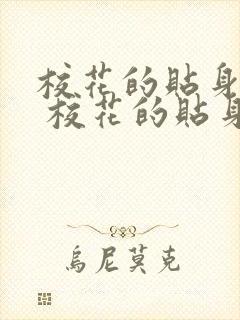 校花的貼身
校花的貼身
烏尼莫克